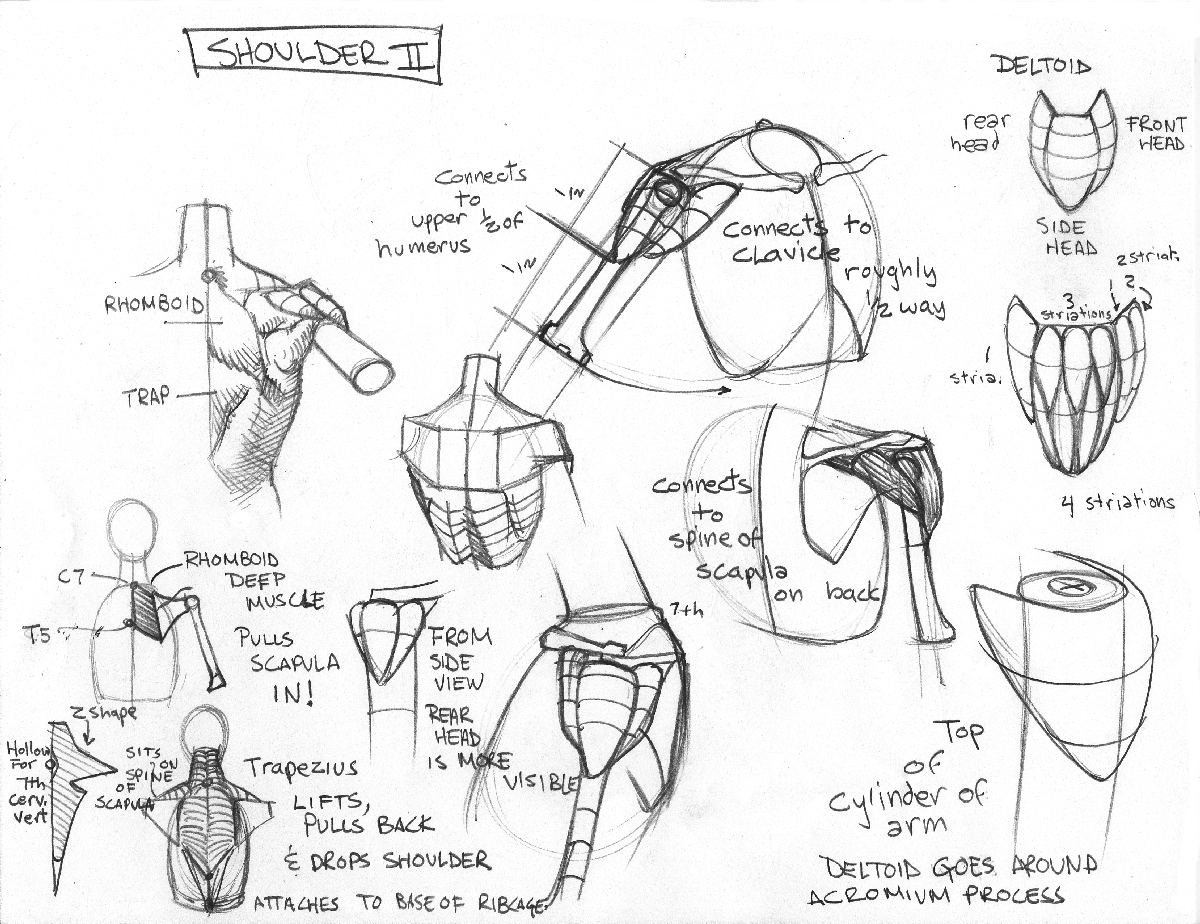 SHOULDER II
DELTOID
rear
head
FRONT
HEAD
SIDE
HEAD
connects
to
upper 1/2 of
humerus
connects to
clavicle
roughly
1/2 way
RHOMBOID
TRAP
2 striat.
1 2
3
striations
1
stria.
4 striations
connects
to
spine of
scapula
on back
C7
T5
RHOMBOID
DEEP
MUSCLE
PULLS
SCAPULA
IN!
FROM
SIDE
VIEW
REAR
HEAD
IS MORE
VISIBLE
7th
Z shape
Hollow
For
7th
Cerv.
Vert
SITS
ON
SPINE
OF
SCAPULA
Trapezius
LIFTS,
PULLS BACK
& DROPS SHOULDER
ATTACHES TO BASE OF RIBCAGE.
TOP
of
cylinder of
arm
DELTOID GOES AROUND
ACROMIUM PROCESS